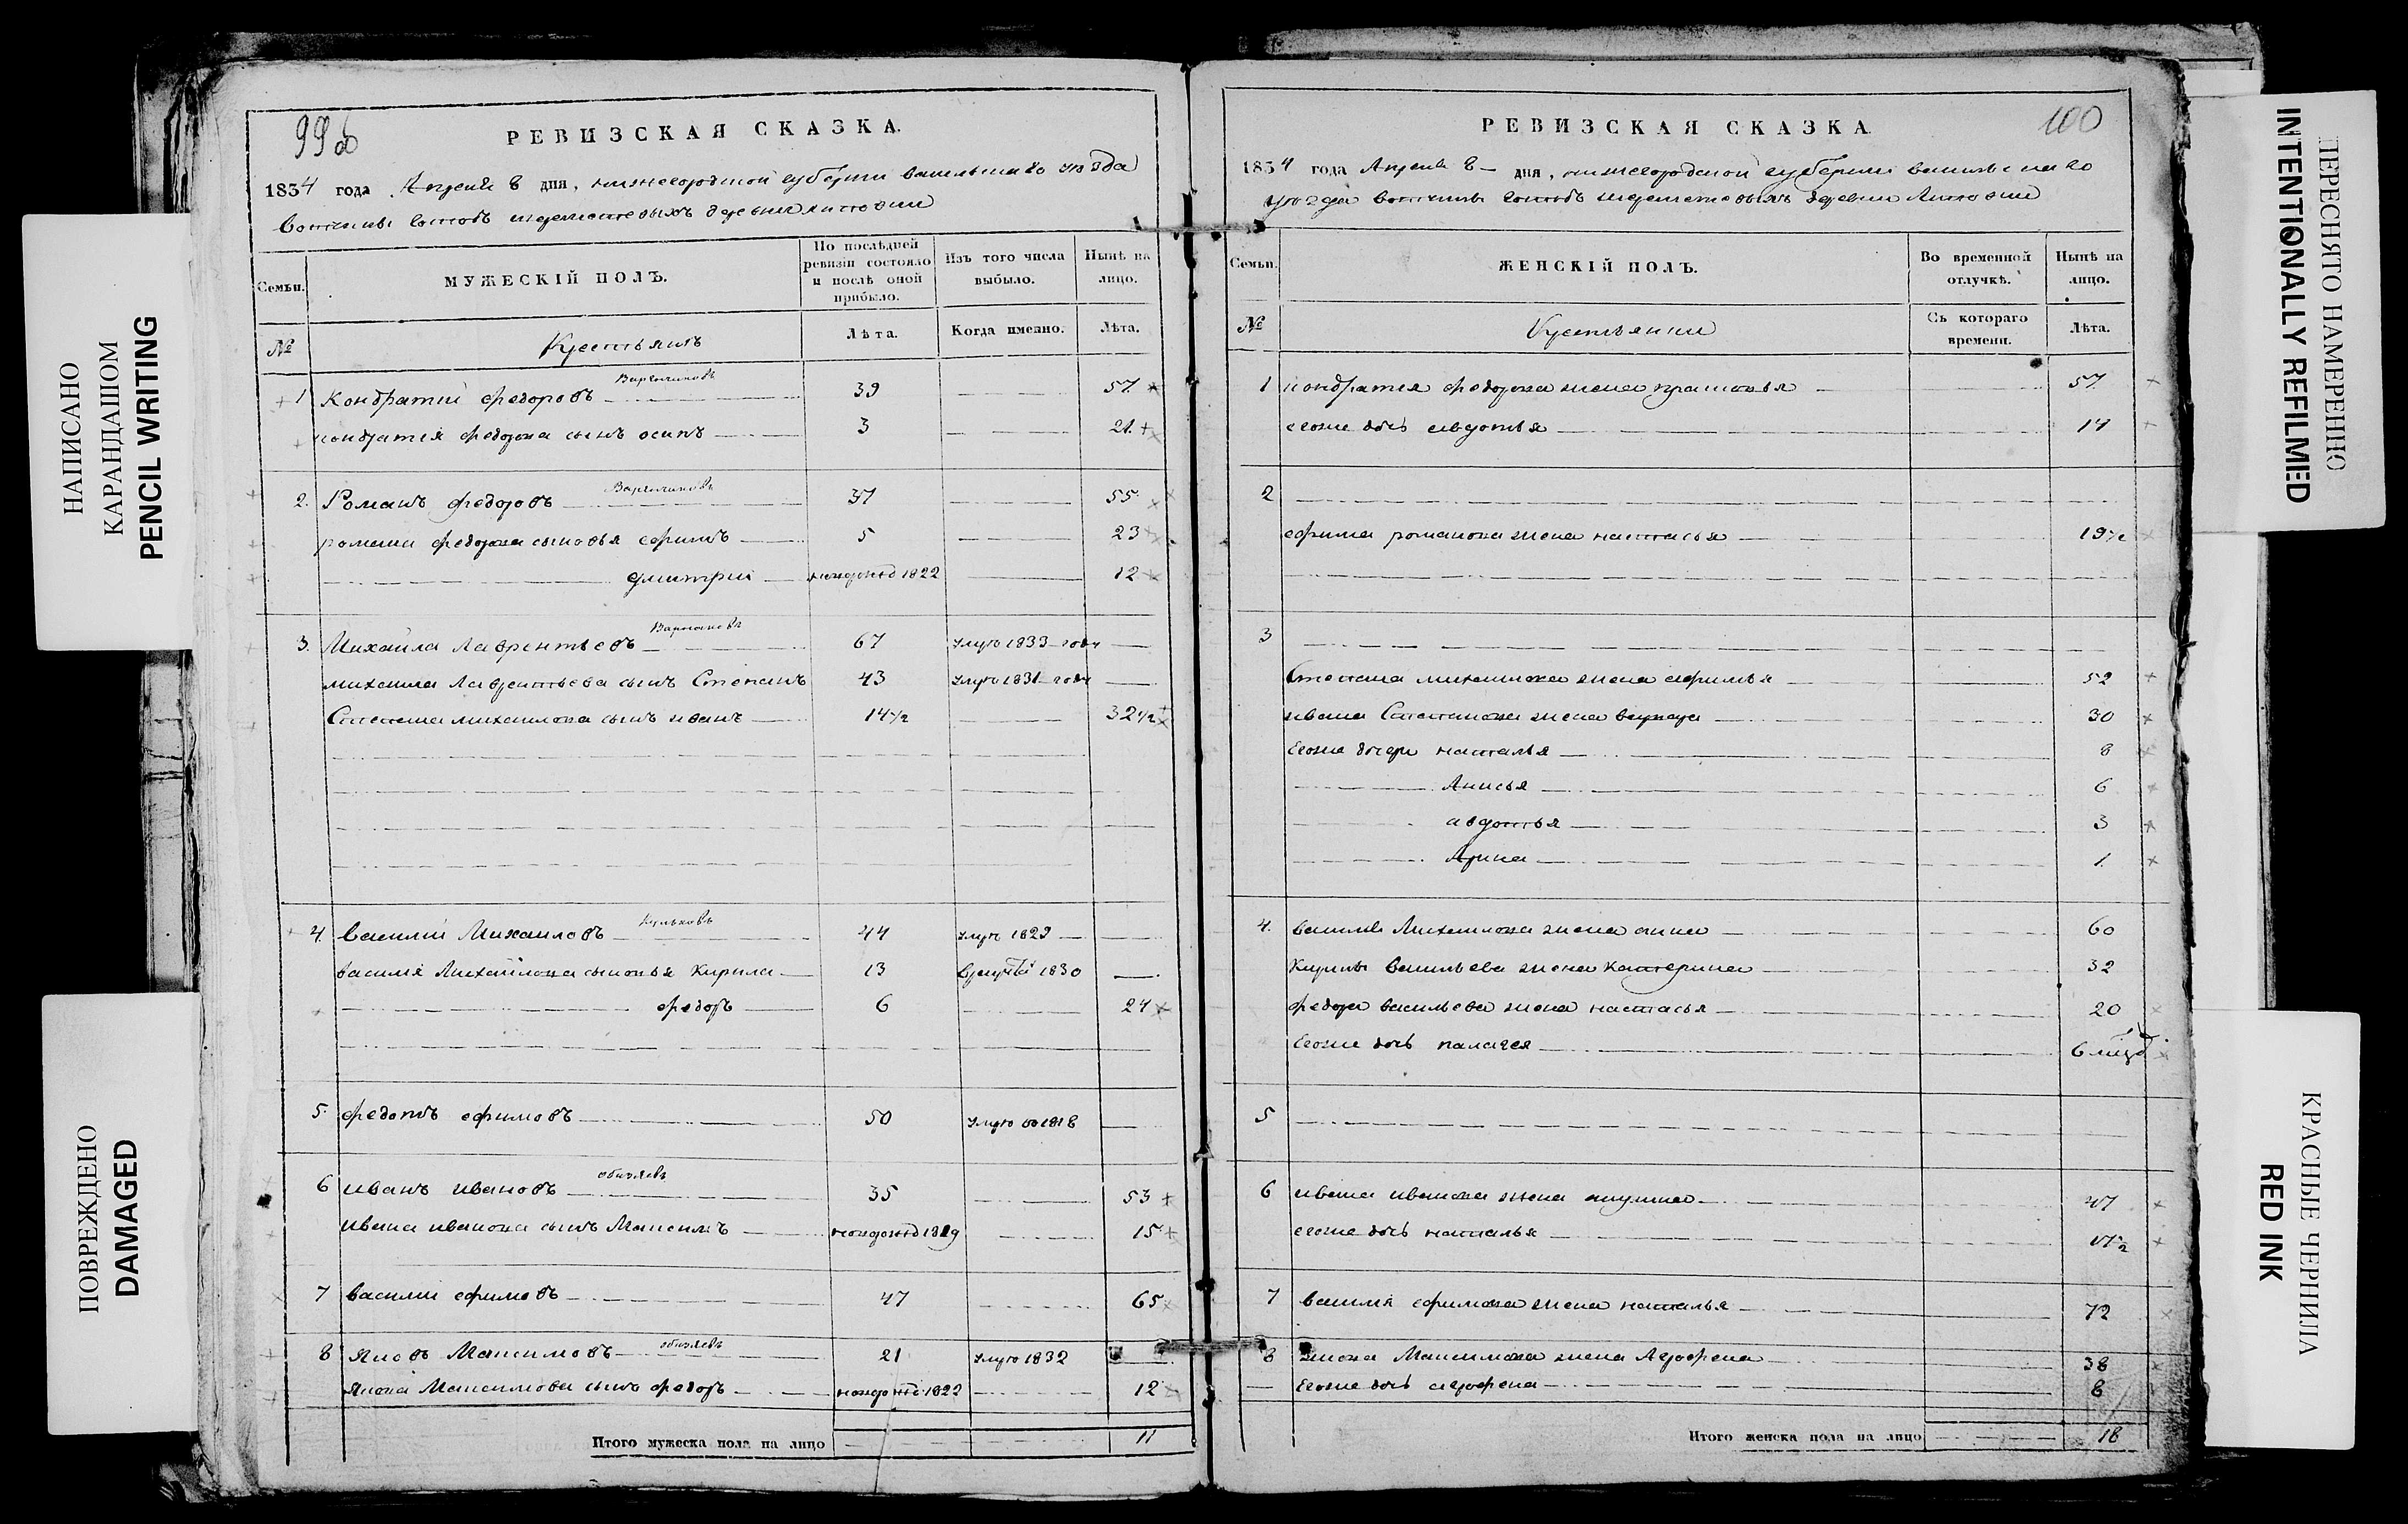 НАПИСАНО
КАРАНДАШОМ
PENCIL WRITING
ПОВРЕЖДЕНО
DAMAGED
РЕВИЗСКАЯ СКАЗКА.
1834 года Апреля 8 дня, нижегородской губернии васильскаго уезда
вотчины деревни
Семьи.
МУЖЕСКІЙ ПОЛЪ.
По последней ревизіи состояло и после оной прибыло.
Изъ того числа выбыло.
Ныне на лицо.
№
Крестьянъ
Лѣта.
Когда именно.
Лѣта.
1 Кондратий Федоровъ 39 57
кондратія федорова сынъ осипъ 3 21
2. Романъ федоровъ 37 55
романа федорова сыновья ефимъ 5 23
дмитрий новорожд 1822 12
3. Михайла Лаврентьевъ 67 умре 1833 года
михаила Лаврентьева сынъ Степанъ 43 умре 1831 года
Степана михаилова сынъ иванъ 14 1/2 32 1/2
4. Василий Михаиловъ Кульковъ 44 умре 1829
василія Михайлова сыновья Кирила 13 1830
федоръ 6 24
5. федотъ ефимовъ 50 умре 1818
6 иванъ ивановъ 35 53
ивана иванова сынъ Максимъ новорожд 1819 15
7 василий ефимовъ 47 65
8 Яковъ Максимовъ 21 умре 1832
Якова Максимова сынъ федоръ новорожд 1822 12
Итого мужеска пола на лицо 11
РЕВИЗСКАЯ СКАЗКА.
100
1834 года Апреля 8 дня, нижегородской губернии васильскаго
уезда вотчины деревни
Семьи.
ЖЕНСКІЙ ПОЛЪ.
Во временной отлучкѣ.
Ныне на лицо.
№
Крестьянки
Съ котораго времени.
Лѣта.
1 кондратія федорова жена прасковья 57
егоже дочь авдотья 14
2
ефима романова жена настасья 19 1/2
3
Степана михаилова жена афимья 52
ивана Степанова жена варвара 30
Егоже дочери наталья 8
Анисья 6
авдотья 3
Арина 1
4. василія Михаилова жена анна 60
Кирилы васильева жена Катерина 32
федора васильева жена настасья 20
Егоже дочь палагея 6
5
6 ивана иванова жена акулина 47
егоже дочь наталья
7 василія ефимова жена наталья 72
8 Якова Максимова жена Аграфена 38
Егоже дочь аграфена 8
Итого женска пола на лицо 18
ПЕРЕСНЯТО НАМЕРЕННО
INTENTIONALLY REFILMED
КРАСНЫЕ ЧЕРНИЛА
RED INK